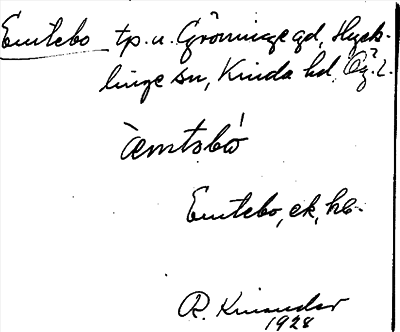 Emtebo tp. u. Grönninge gd, Hyck-
linge sn, Kinda hd, Ög. l.
Emtebo, ek, hb.
R. Kinander
1928